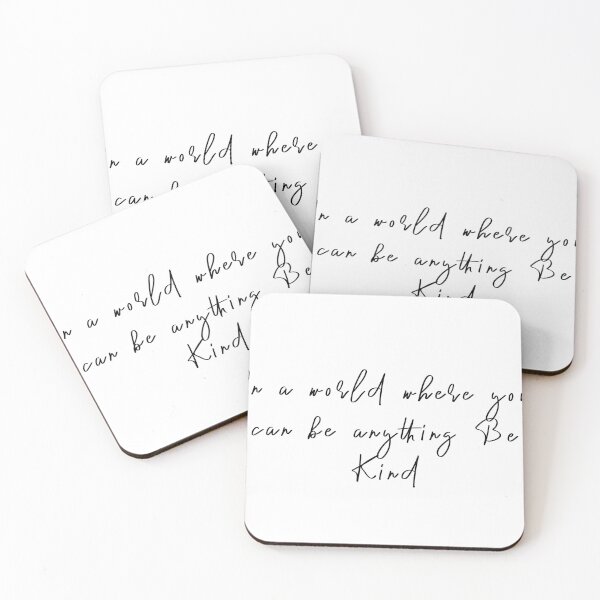 n a world where
can be
n a world where you
can be anything Be
Kind
n a world where you
can be anything Be
Kind
n a world where you
can be anything Be
Kind